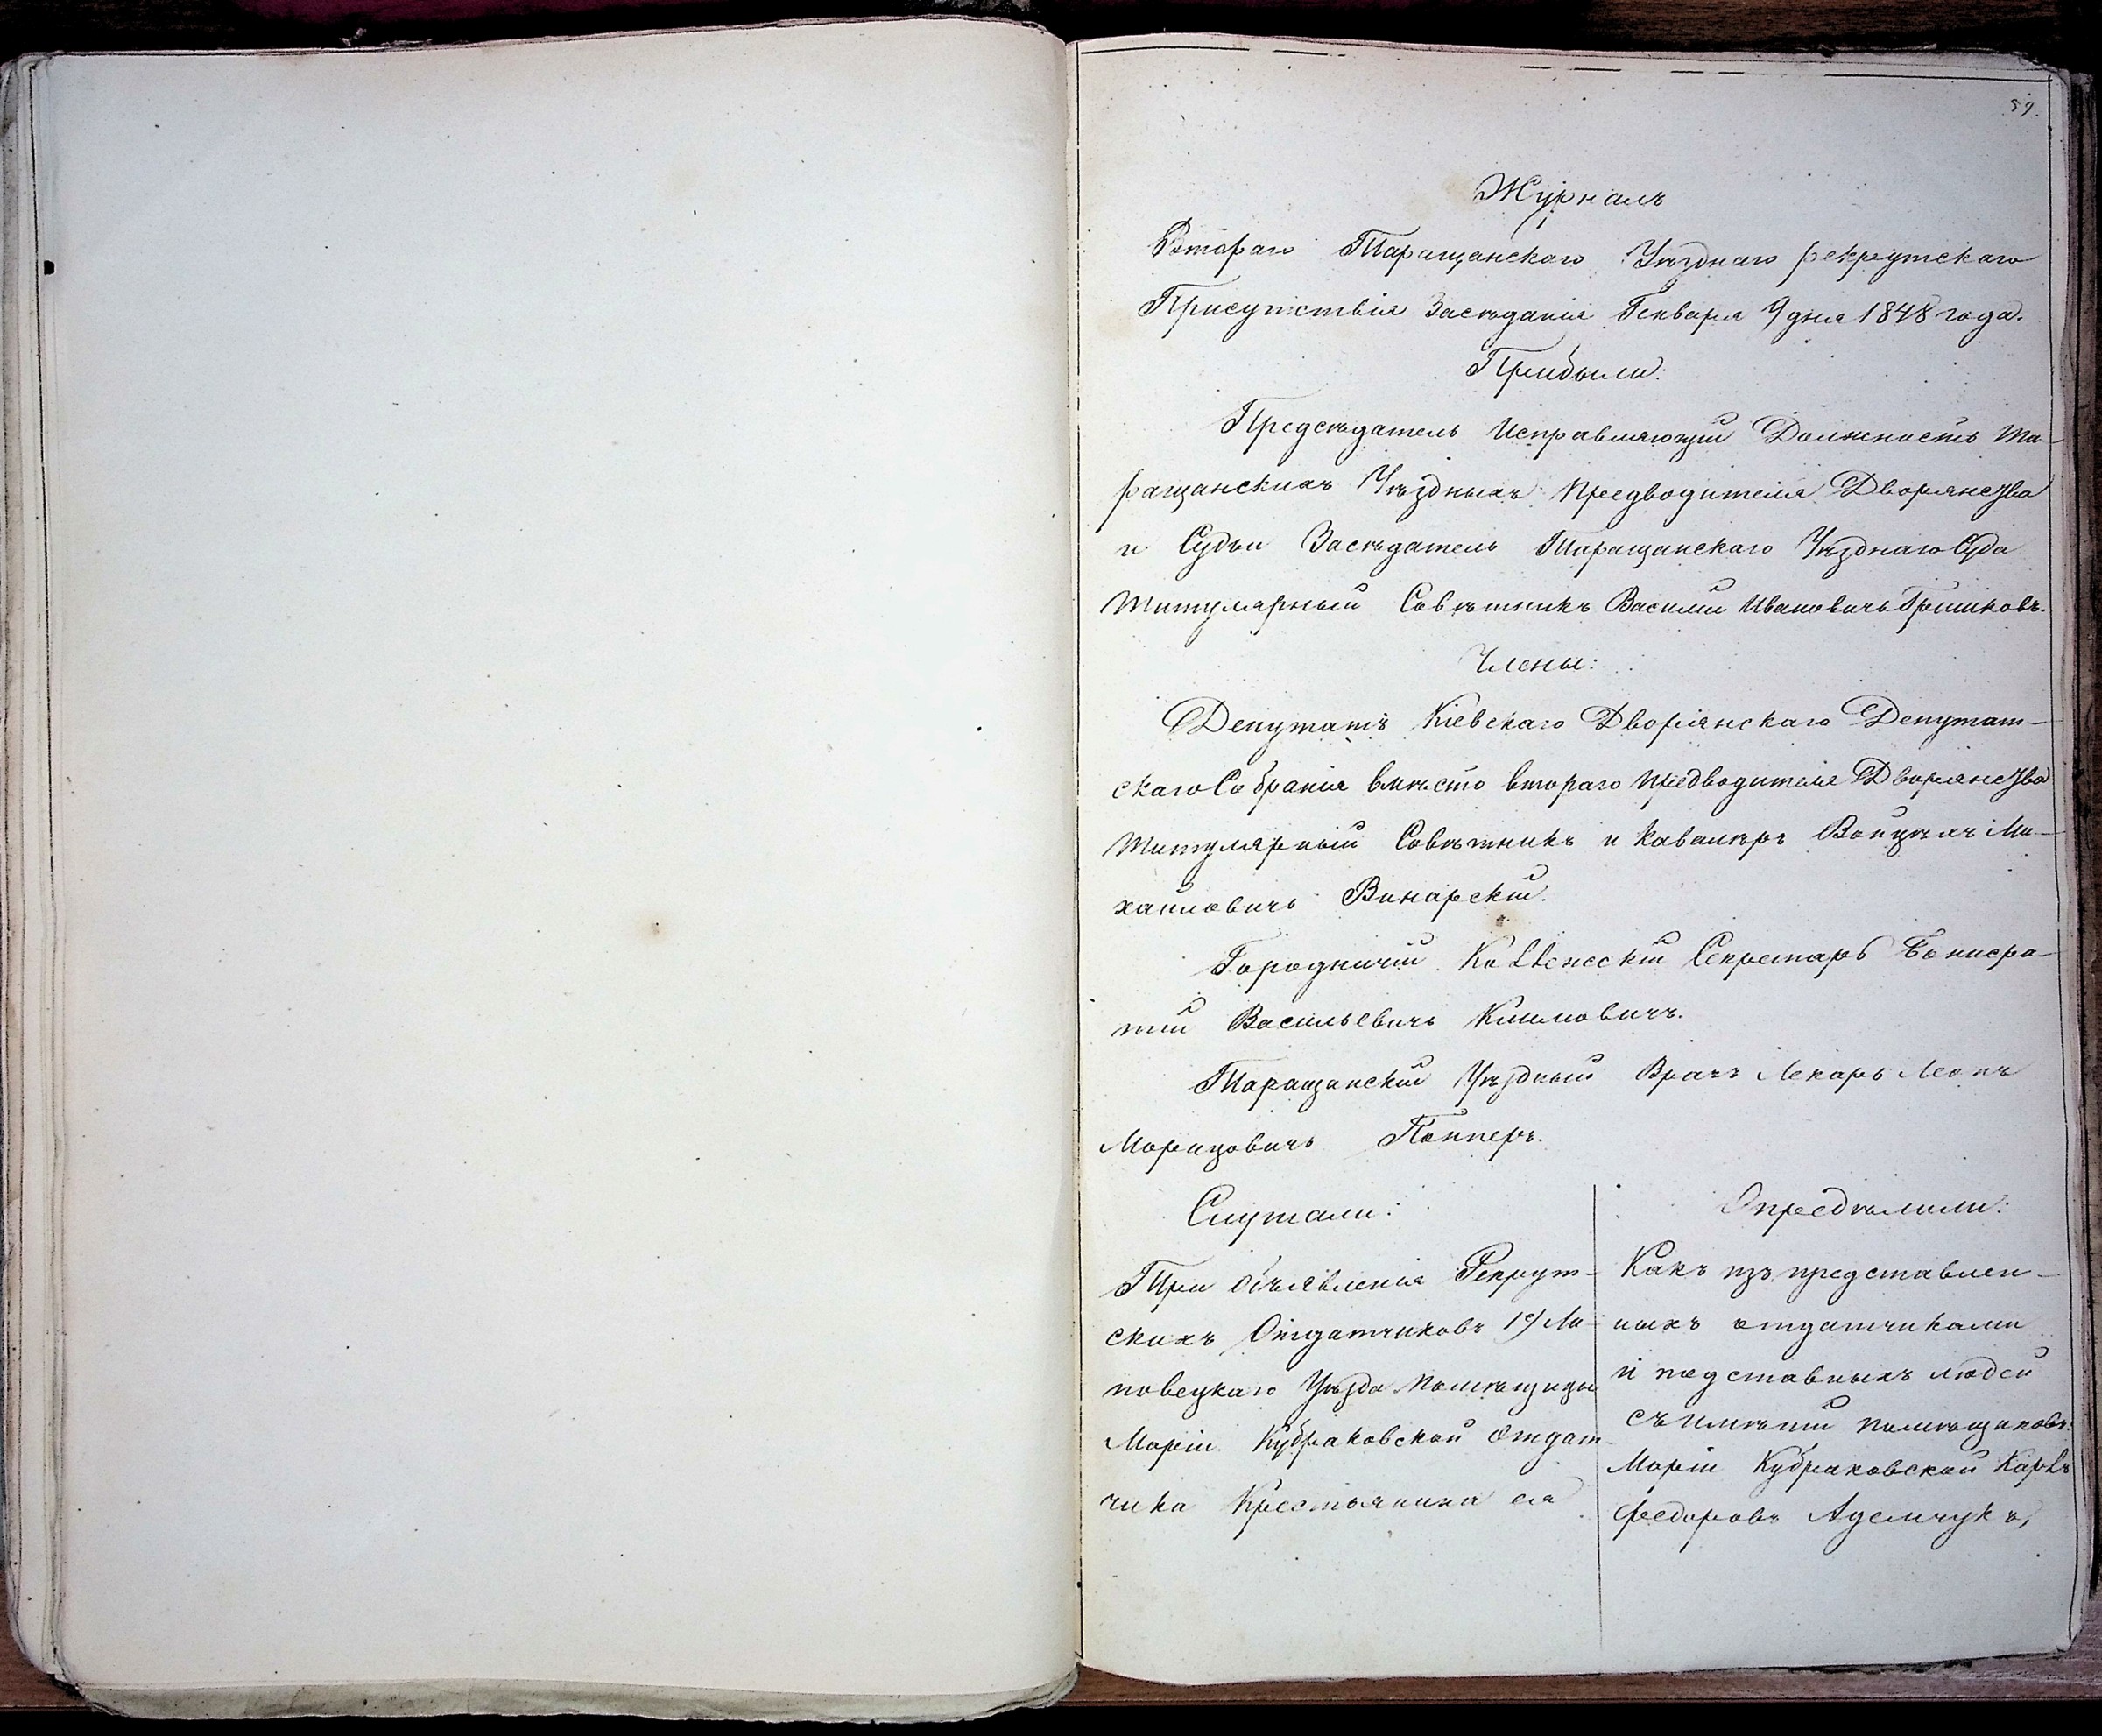 59.
Журналъ
Втораго Таращанскаго Уѣзднаго рекрутскаго
Присутствія Засѣданія Генваря 9 дня 1848 года.
Прибыли:
Предсѣдатель Исправляющій Должность Та-
ращанскихъ Уѣздныхъ Предводителя Дворянства
и Судьи Засѣдатель Таращанскаго Уѣзднаго Суда
Титулярный Совѣтникъ Василій Ивановичъ Гришковъ.
Члены:
Депутатъ Кіевскаго Дворянскаго Депутат-
скаго Собранія вмѣсто втораго предводителя Дворянства
Титулярный Совѣтникъ и Кавалѣръ Войцѣхъ Ми-
хайловичъ Винарскій.
Городничій Коллежескій Секретарь Бонифа-
тій Васильевичъ Климовичъ.
Таращанскій Уѣздный Врачъ Лекарь Леонъ
Морицовичъ Попперъ.
Слушали:
При объявленія Рекрут-
скихъ Отдатчиковъ 1е/ Ли-
повецкаго Уѣзда Помѣщицы
Маріи Кубраковской отдат-
чика Крестьянина ея
Опредѣлили:
Какъ изъ представлен-
ныхъ отдатчиками
и подставныхъ людей
съ имѣній помѣщиковъ:
Маріи Кубраковской Карлъ
Федоровъ Адемчукъ,